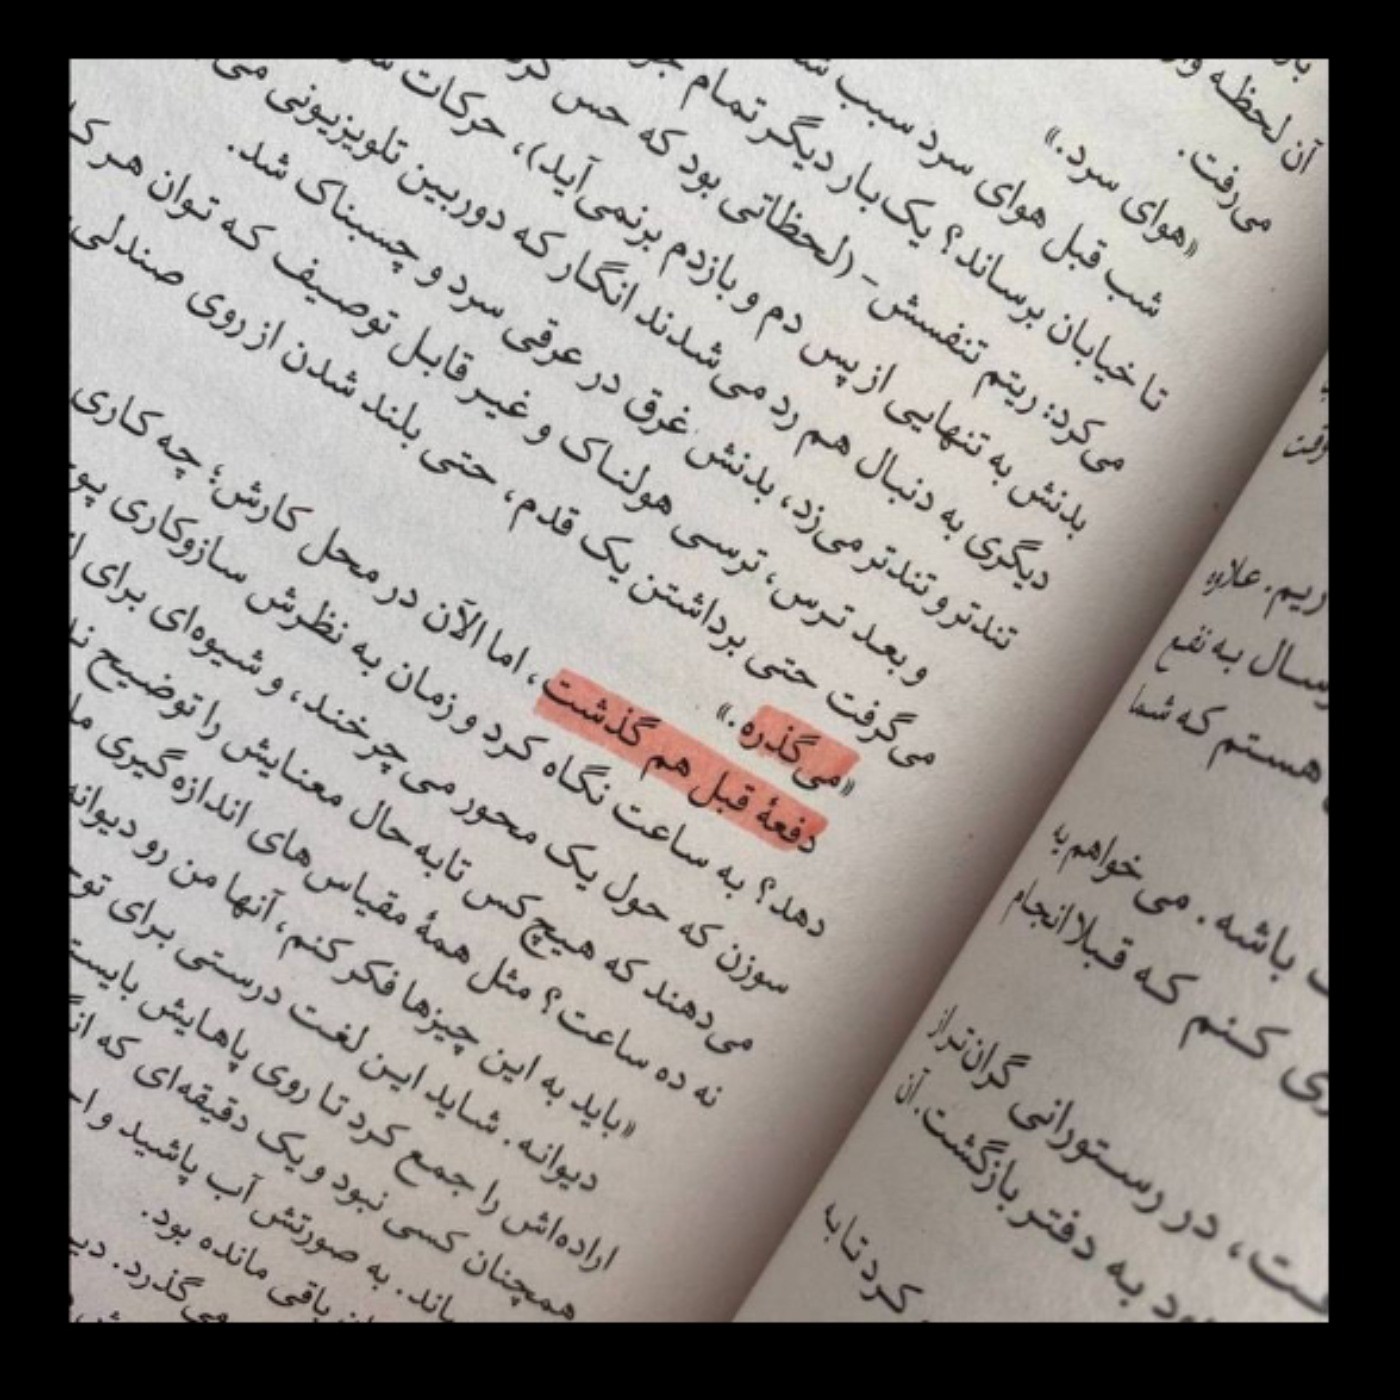 آن لحظه
می‌رفت.
«هوای سرد.»
شب قبل هوای سرد سبب
تا خیابان برساند؟ یک‌بار دیگر تمام
می‌کرد: ریتم تنفسش- (لحظاتی بود که حس
بدنش به تنهایی از پس دم و بازدم برنمی‌آید)، حرکات
دیگری به دنبال هم رد می‌شدند انگار که دوربین تلویزیونی
تندتر و تندتر می‌زد، بدنش غرق در عرقی سرد و چسبناک شد.
و بعد ترس، ترسی هولناک و غیر قابل توصیف که توان هر
می‌گرفت حتی برداشتن یک قدم، حتی بلند شدن از روی صندلی
«می‌گذره.»
دفعهٔ قبل هم گذشت، اما الآن در محل کارش؛ چه کاری
دهد؟ به ساعت نگاه کرد و زمان به نظرش سازوکاری
سوزن که حول یک محور می‌چرخند، و شیوه‌ای برای
می‌دهند که هیچ‌کس تابه‌حال معنایش را توضیح
نه ده ساعت؟ مثل همهٔ مقیاس‌های اندازه‌گیری
«باید به این چیزها فکر کنم، آنها من رو دیوانه
دیوانه. شاید این لغت درستی برای
اراده‌اش را جمع کرد تا روی پاهایش
همچنان کسی نبود و یک دقیقه‌ای که
به صورتش آب پاشید و
باقی مانده بود.
می‌گذرد.
وقت
ریم. علاوه
سال به نفع
هستم که شما
باشه. می‌خواهم به
کنم که قبلا انجام
در رستورانی گران‌تر از
به دفتر بازگشت. آن
کرد تا به